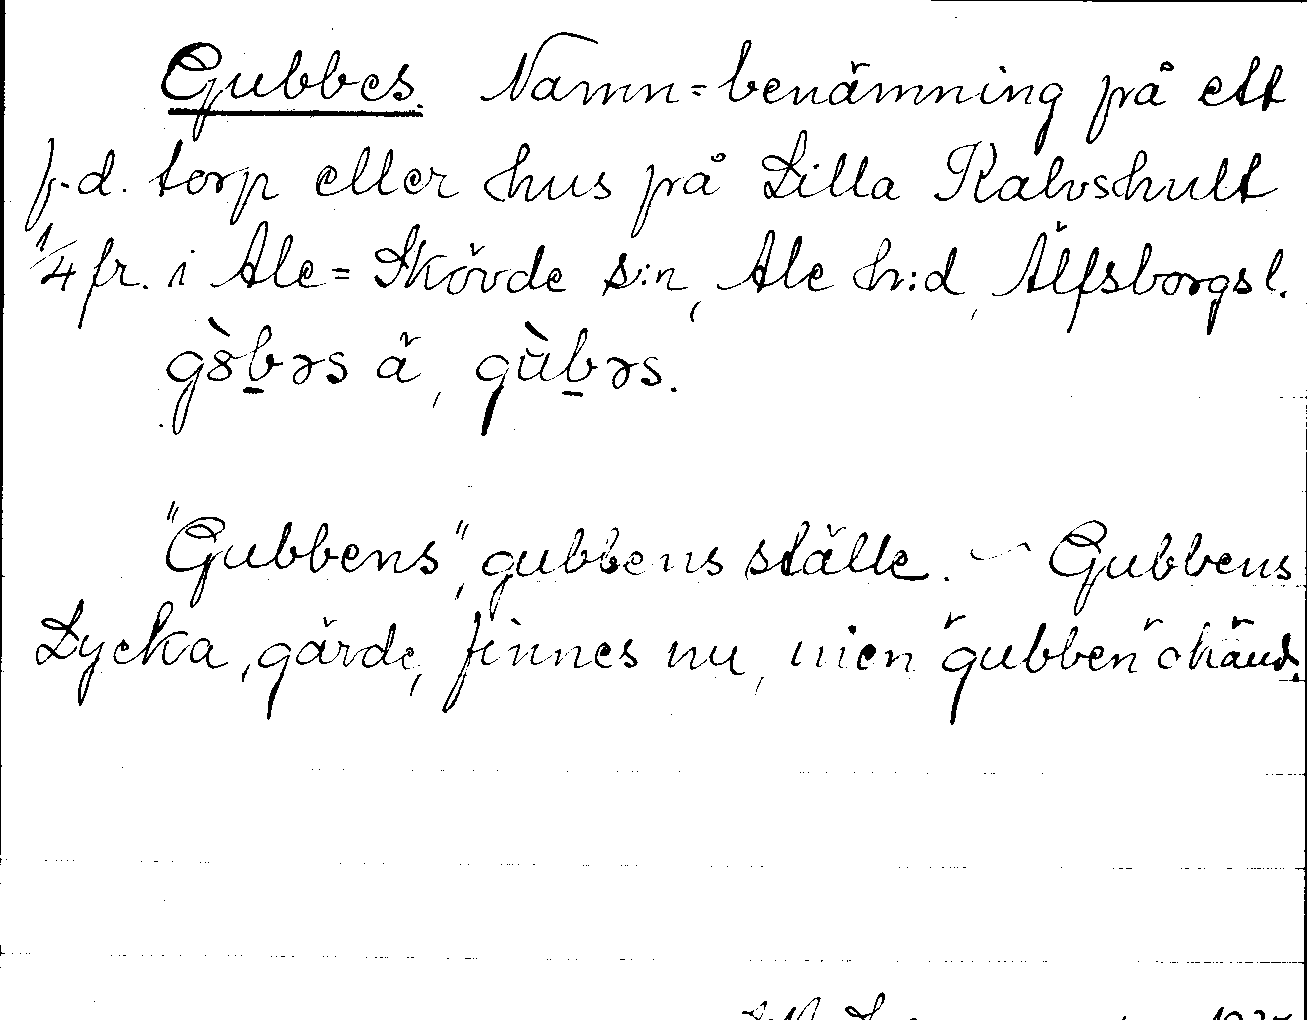 Gubbes. Namn=benämning på ett
f.d. torp eller hus på Lilla Kalvshult
1/4 fr. i Ale=Skövde s:n, Ale h:d, Älfsborgs l.
gòb̲əs ä, gùb̲əs.
"Gubbens", gubbens ställe. – Gubbens
Lycka, gärde, finnes nu, men gubben okänd.